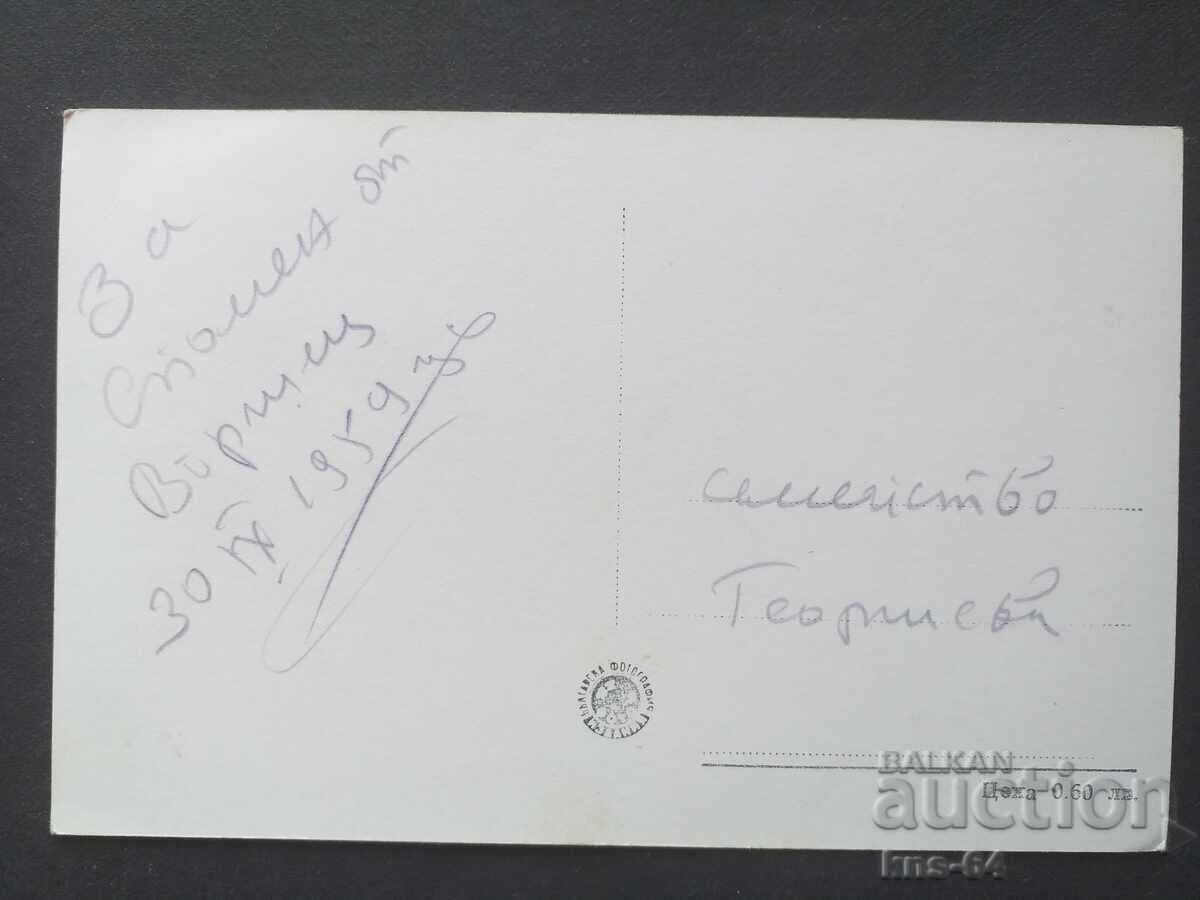 За
Спомен от
Вършец
30 IX 1959 г.
семейство
Георгиеви
БЪЛГАРСКА ФОТОГРАФИЯ
Цена 0.60 лв.
BALKAN
auction
kns-64